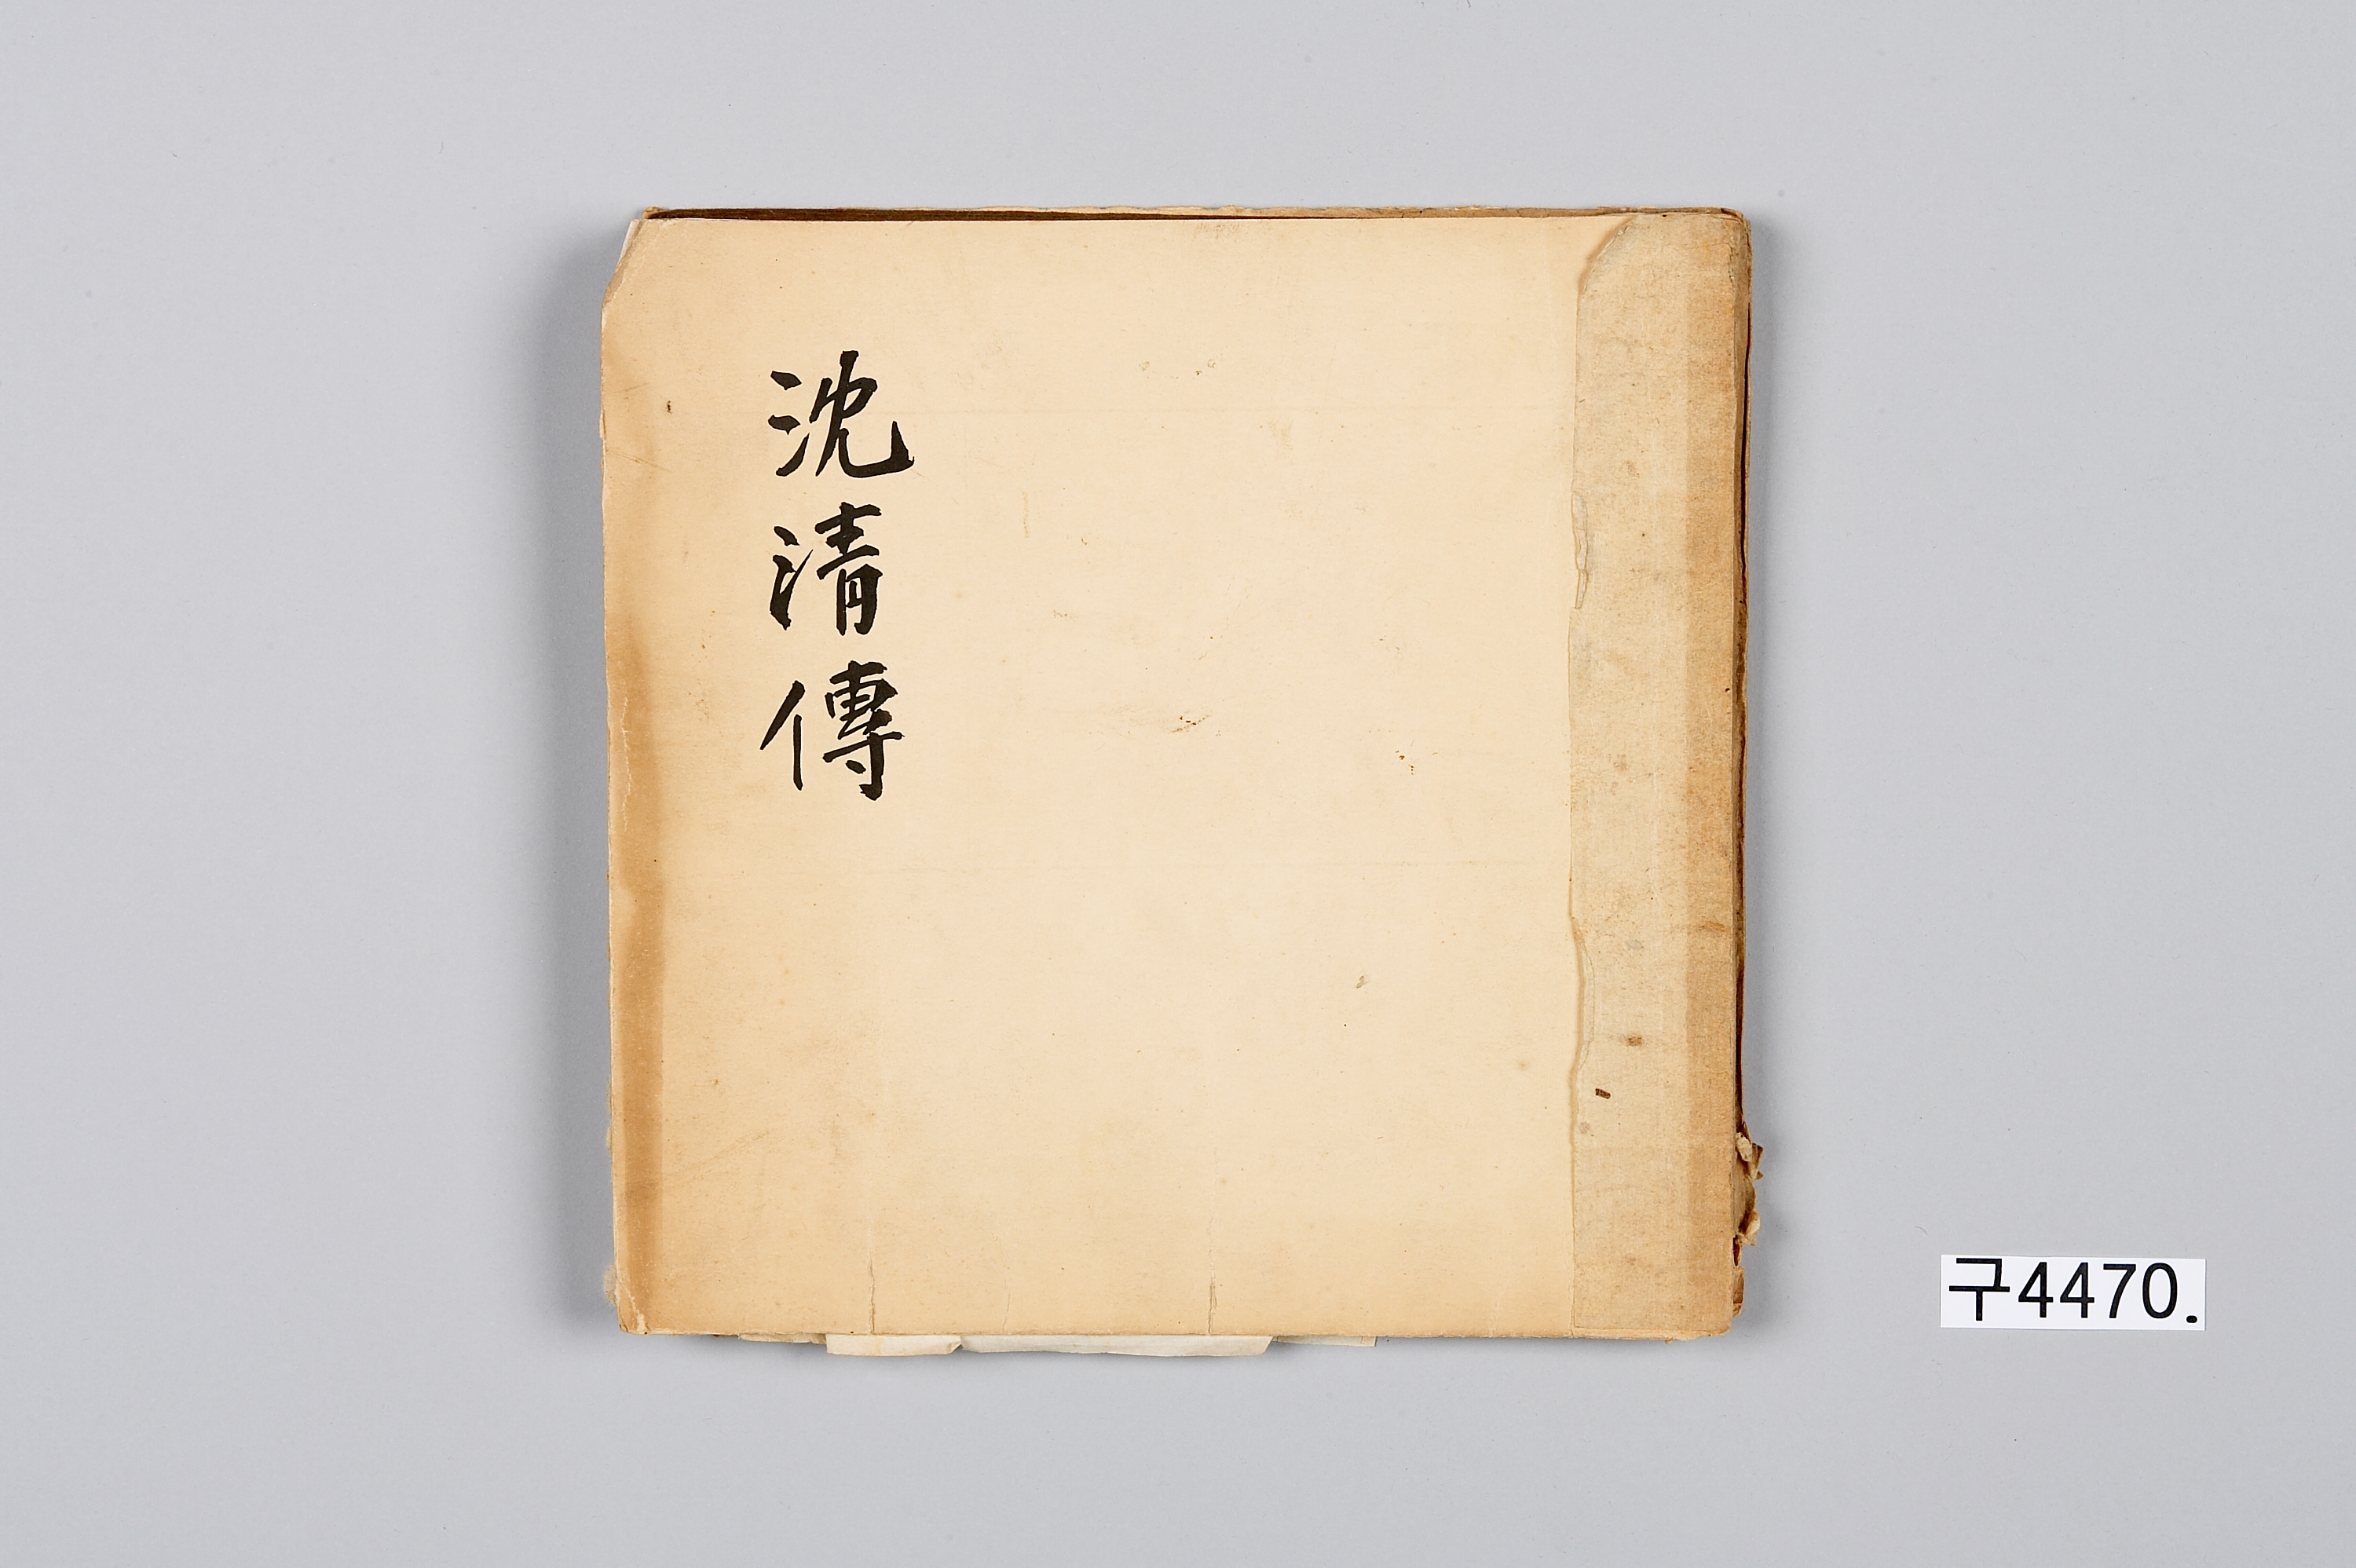 沈清傳
구4470.